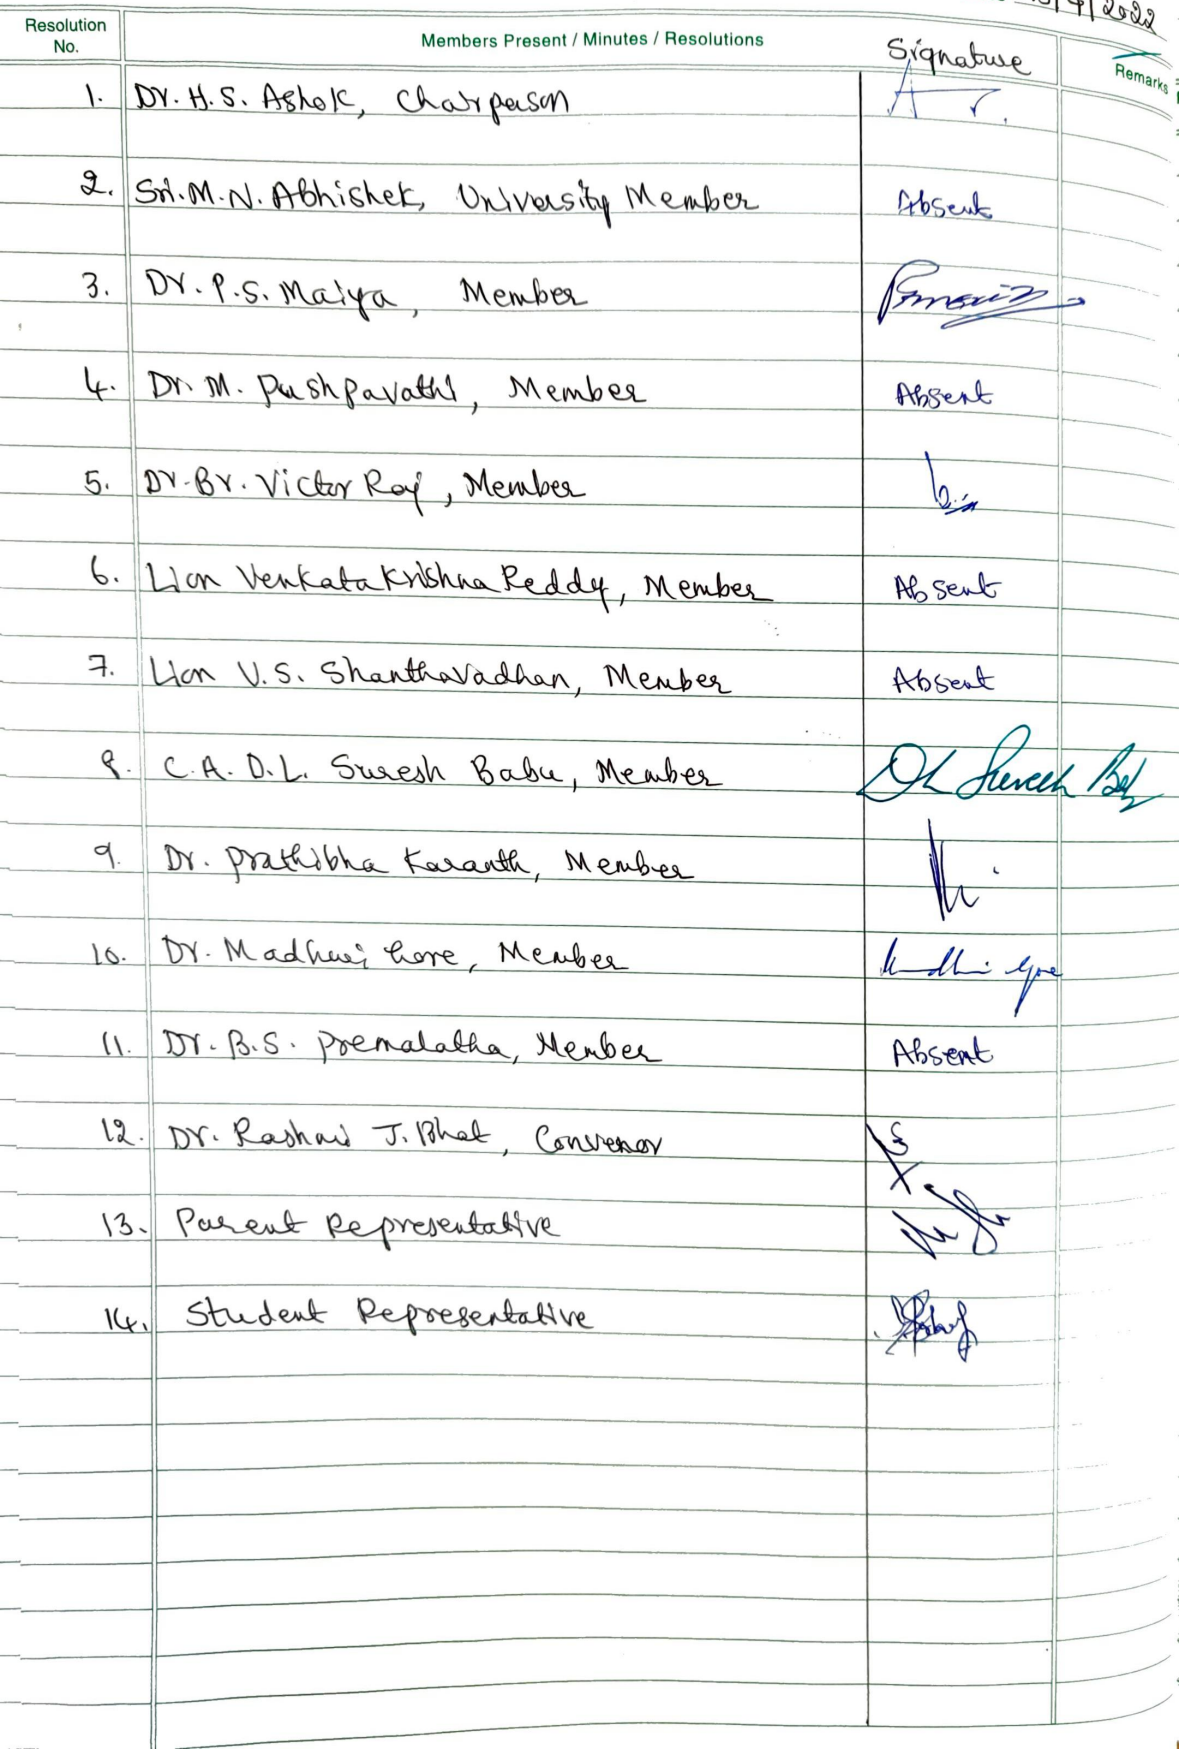 /4/2022
Resolution No.
Members Present / Minutes / Resolutions
Signature
Remarks
1. Dr. H. S. Ashok, Chairperson
2. Sri. M. N. Abhishek, University Member Absent
3. Dr. P. S. Maiya, Member
4. Dr. M. Pushpavathi, Member Absent
5. Dr. Br. Victor Raj, Member
6. Lion Venkata Krishna Reddy, Member Absent
7. Lion V. S. Shanthavadhan, Member Absent
8. C.A. D.L. Suresh Babu, Member DL Suresh Bab
9. Dr. Prathibha Karanth, Member
10. Dr. Madhuri Gore, Member
11. Dr. B.S. Premalatha, Member Absent
12. Dr. J. Bhat, Convenor
13. Parent Representative
14. Student Representative